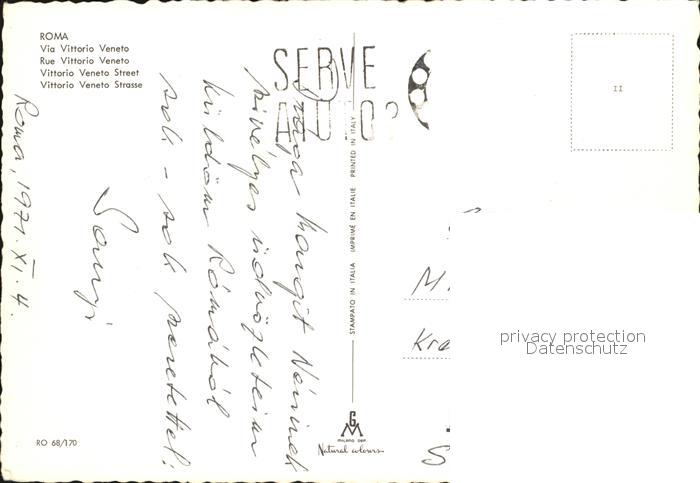 ROMA
Via Vittorio Veneto
Rue Vittorio Veneto
Vittorio Veneto Street
Vittorio Veneto Strasse
SERVE
AUTO?
II
Drága Margit Néninek
szivélyes üdvözleteim
küldöm Rómából
sok - sok szeretettel:
Sanyi
Roma, 1971. XI. 4.
STAMPATO IN ITALIA IMPRIMÉ EN ITALIE PRINTED IN ITALY
M.
Kre
S
privacy protection
Datenschutz
RO 68/170
G
M
MILANO DEP.
Natural colours